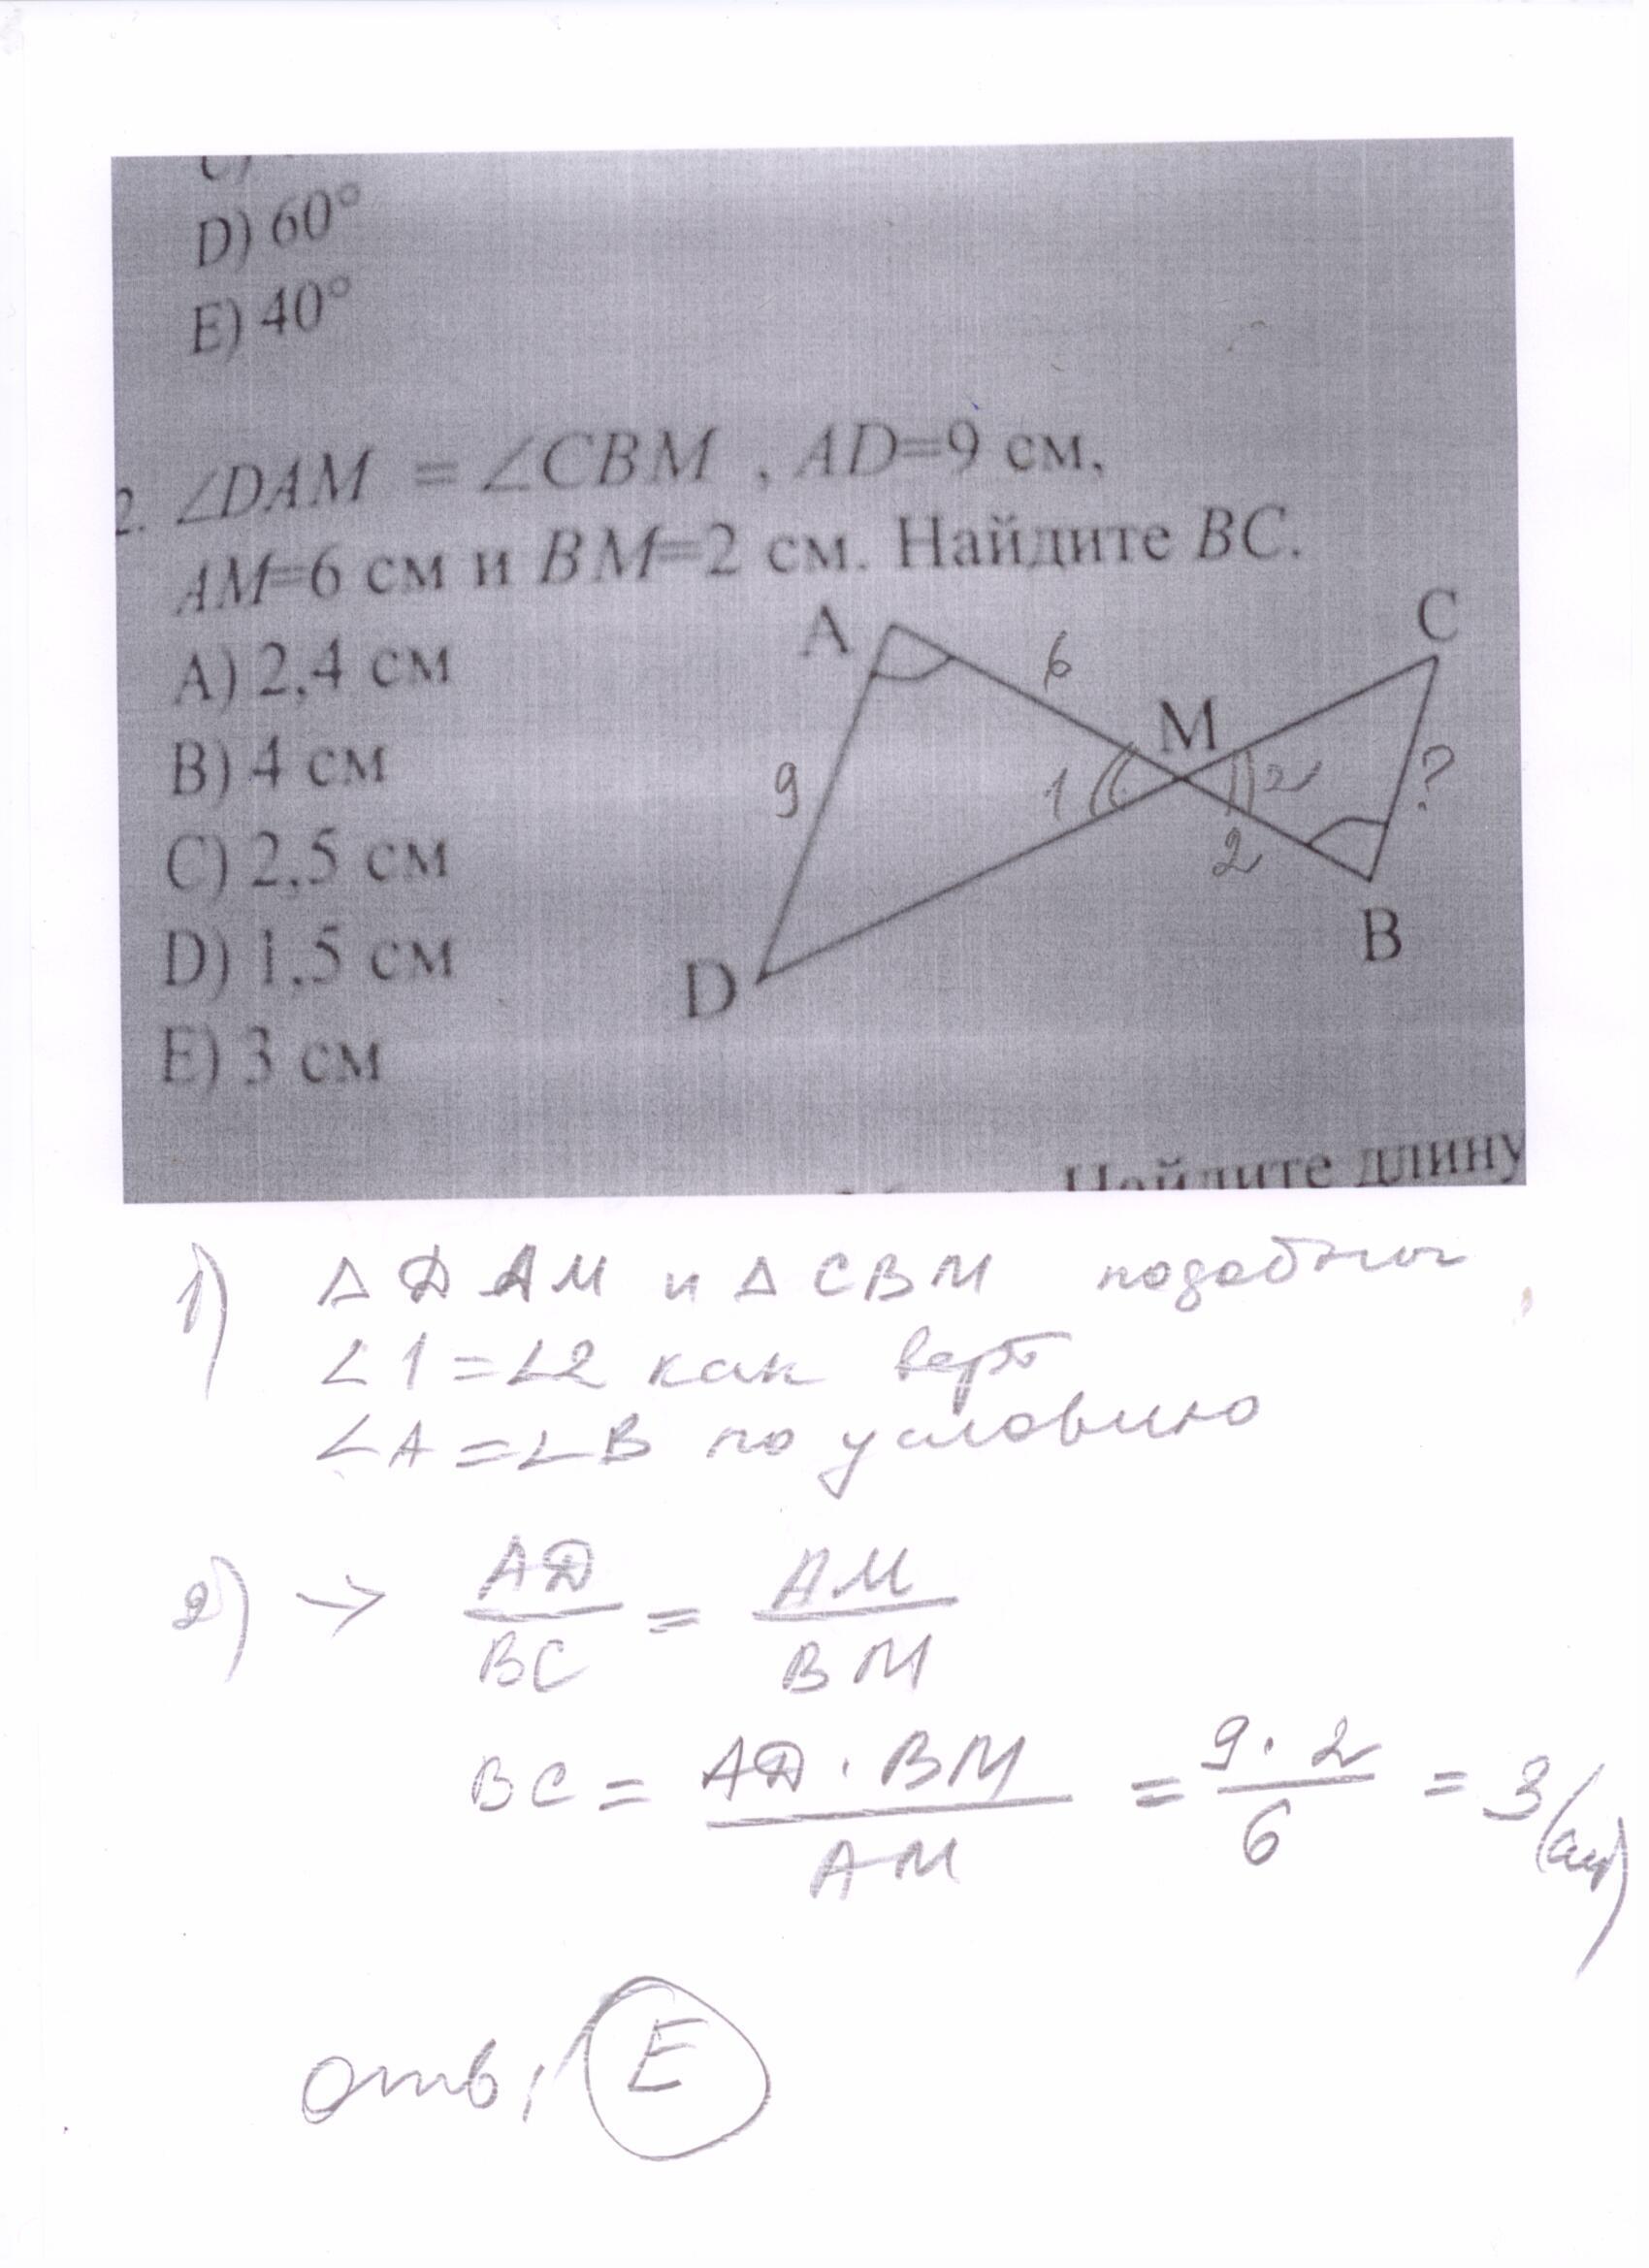 D) 60°
E) 40°
2. ∠DAM = ∠CBM , AD=9 см,
AM=6 см и BM=2 см. Найдите BC.
A) 2,4 см
B) 4 см
C) 2,5 см
D) 1,5 см
E) 3 см
A
6
C
M
9
1
2
?
2
B
D
Найдите длину
1) Δ DAM и Δ CBM подобны
∠1 = ∠2 как верт
∠A = ∠B по условию
2) → AD/BC = AM/BM
BC = AD · BM/AM = 9 · 2/6 = 3 (см)
отв; E